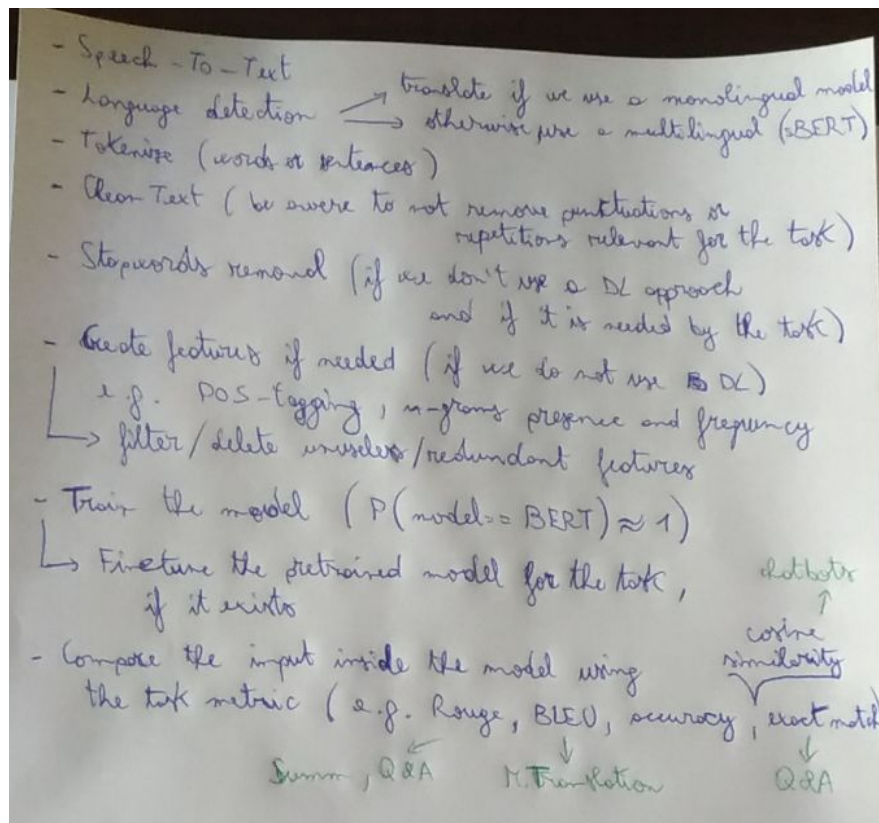 - Speech-To-Text
- Language detection → translate if we use a monolingual model
→ otherwise use a multilingual (sBERT)
- Tokenize (words or sentences)
- Clean Text (be awere to not remove punktuations or
repetitions relevant for the task)
- Stopwords removal (if we don't use a DL approach
and if it is needed by the task)
- Create features if needed (if we do not use DL)
e.g. POS-tagging, n-grams presence and frequency
→ filter/delete unuseless/redundant features
- Train the model (P(model== BERT) ≈ 1)
→ Finetune the pretrained model for the task,
if it exists
chatbots
↑
cosine
similarity
- Compare the input inside the model using
the task metric (e.g. Rouge, BLEU, accuracy, exact match
Summ, Q&A
M. Translation
Q&A